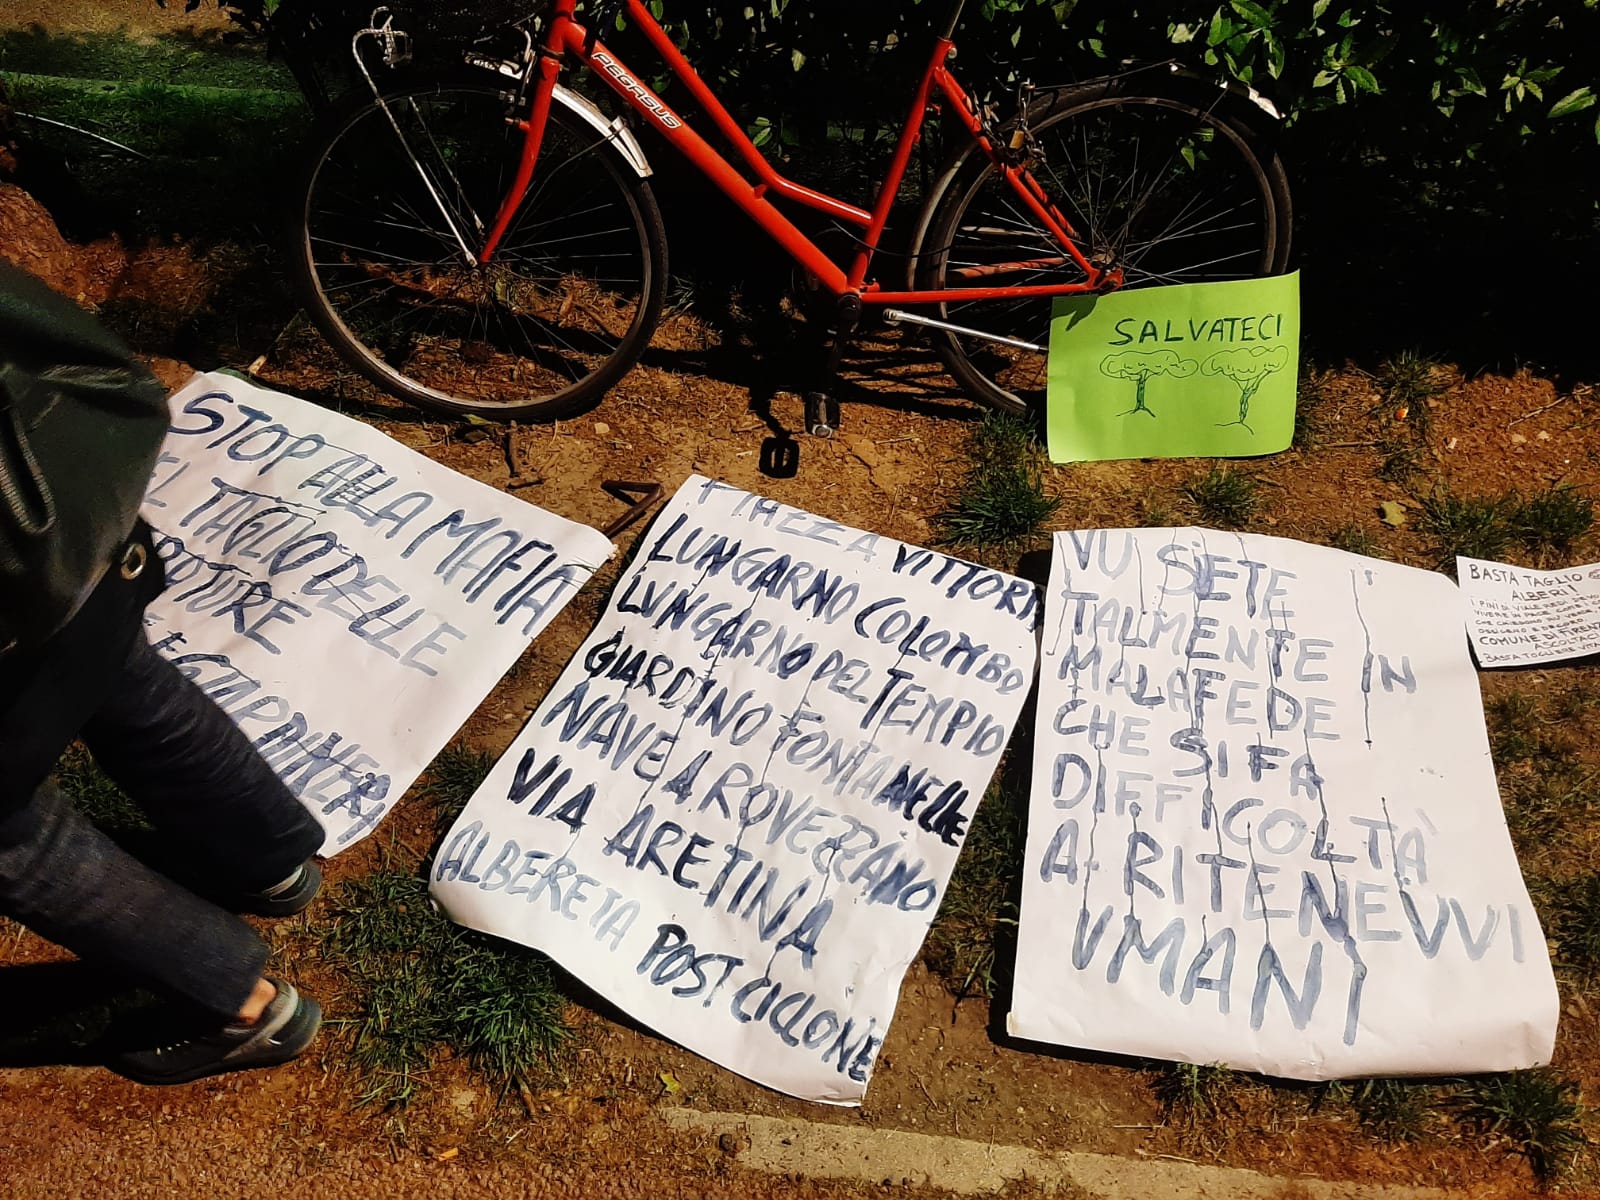 PEGASUS
SALVATECI
STOP ALLA MAFIA
TAGLIO DELLE
PIAZZA VITTORI
LUNGARNO COLOMBO
LUNGARNO DEL TEMPIO
GIARDINO FONTANELLE
NAVE A ROVEZZANO
VIA ARETINA
ALBERETA POST CICLONE
VU SIETE
TALMENTE IN
MALAFEDE
CHE SI FA
DIFFICOLTÀ
A RITENEVVI
UMANI
BASTA TAGLIO
ALBERI!
I PINI DI VIALE REDI
VIVERE IN PACE
OSSIGENO E
COMUNE DI FIREN
ASCOLTACI
BASTA TOGLIERE VITA